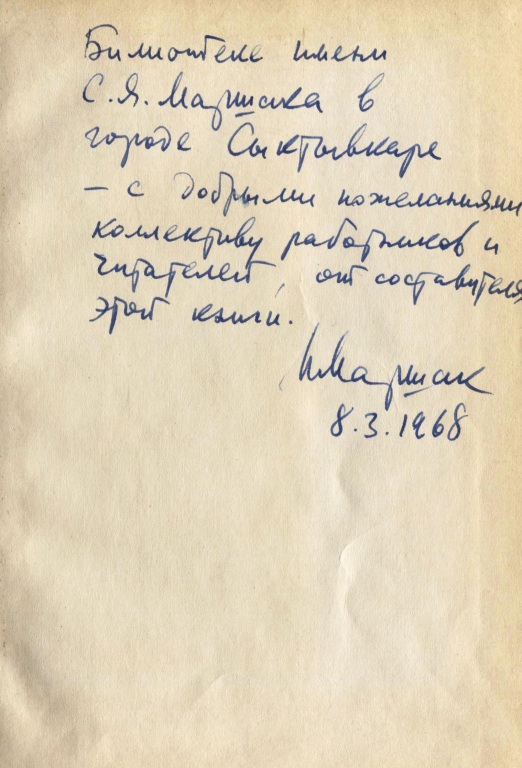 Библиотеке имени
С. Я. Маршака в
городе Сыктывкаре
– с добрыми пожеланиями
коллективу работников и
читателей, от составителя
этой книги.
ИМаршак
8.3.1968